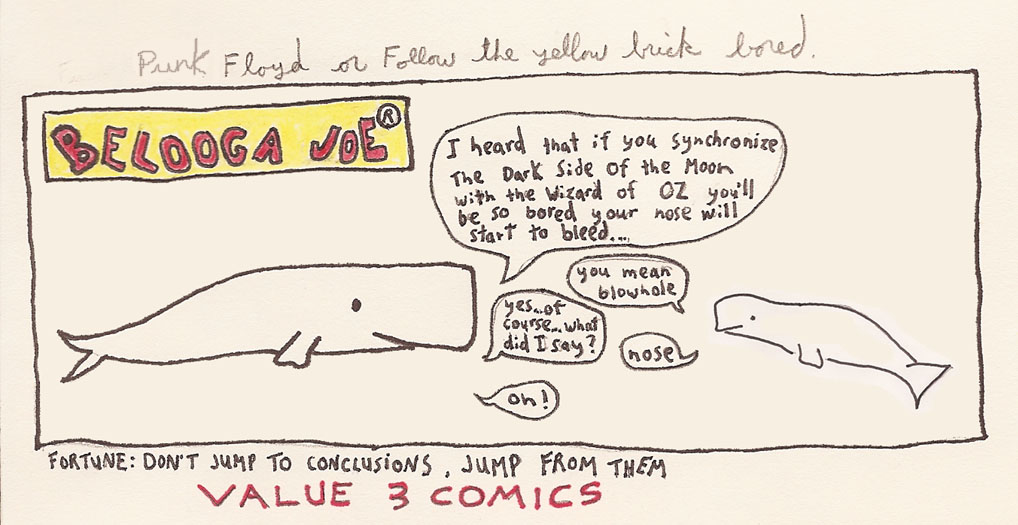 Punk Floyd or Follow the yellow brick bored.
BELOOGA JOE®
I heard that if you synchronize
The Dark Side of the Moon
with the Wizard of OZ you'll
be so bored your nose will
start to bleed...
you mean
blowhole
yes...of
course...what
did I say?
nose
oh!
FORTUNE: DON'T JUMP TO CONCLUSIONS, JUMP FROM THEM
VALUE 3 COMICS